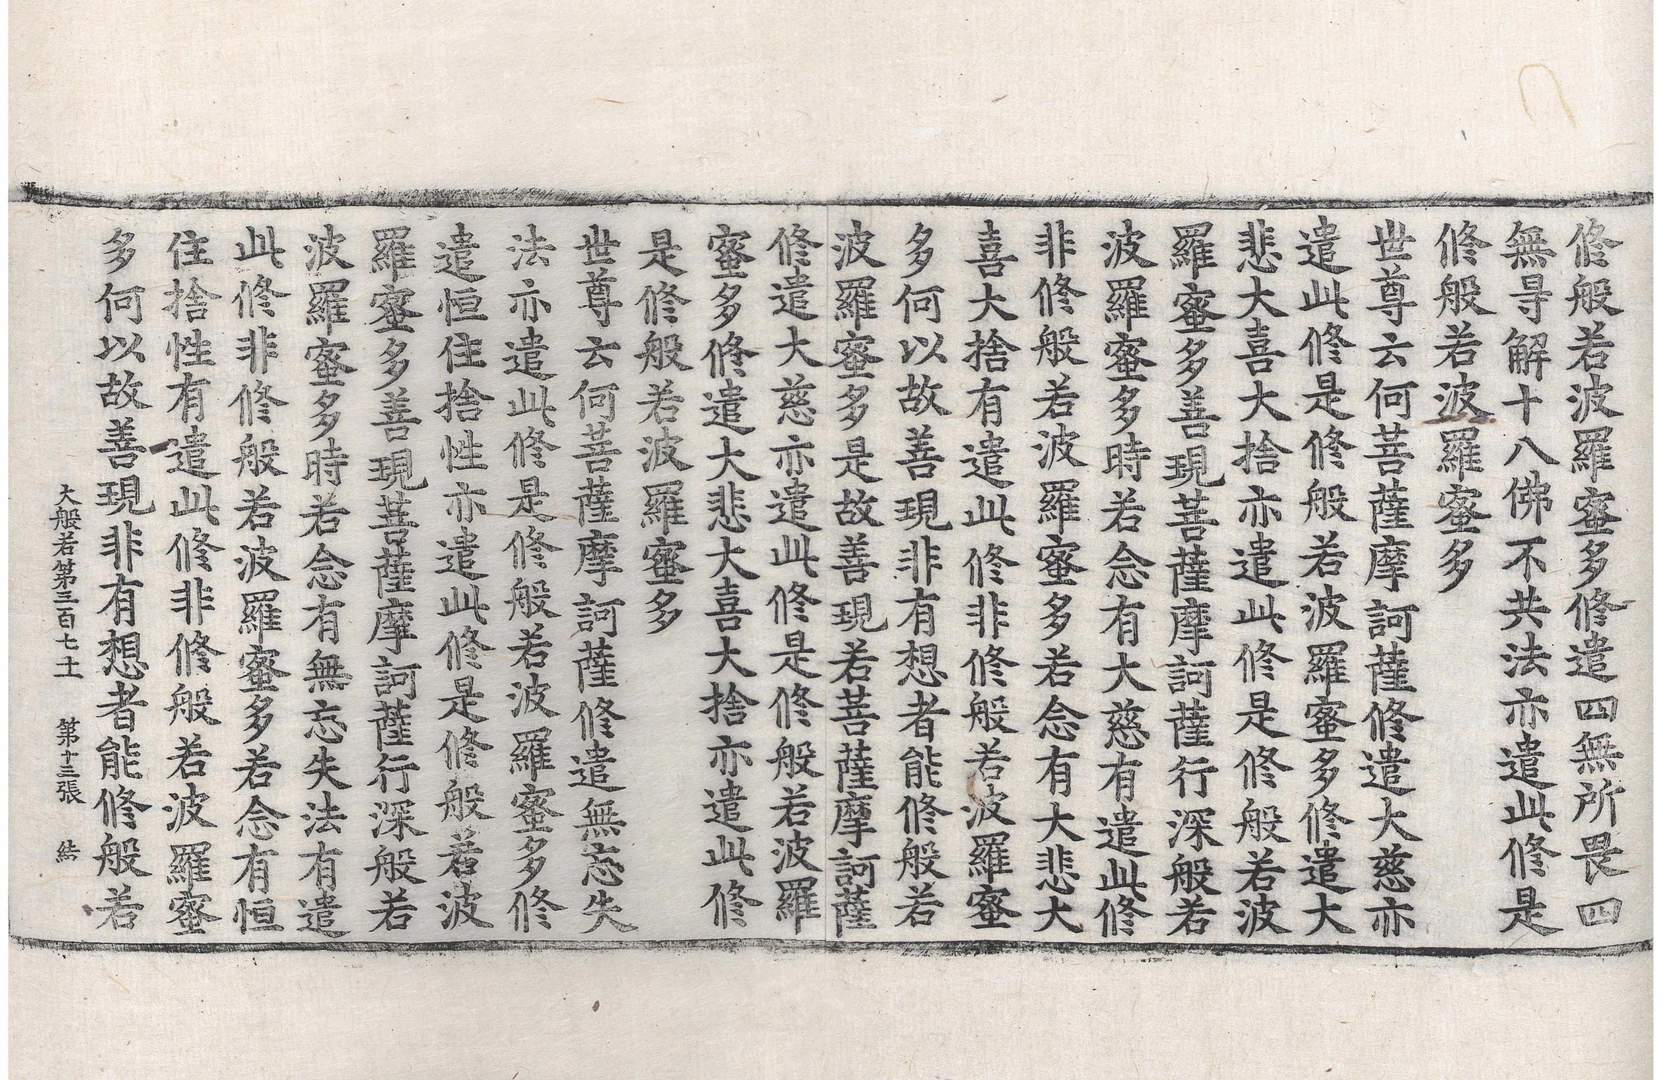 修般若波羅蜜多修遣四無所畏四
無㝵解十八佛不共法亦遣此修是
修般若波羅蜜多
世尊云何菩薩摩訶薩修遣大慈亦
遣此修是修般若波羅蜜多修遣大
悲大喜大捨亦遣此修是修般若波
羅蜜多善現菩薩摩訶薩行深般若
波羅蜜多時若念有大慈有遣此修
非修般若波羅蜜多若念有大悲大
喜大捨有遣此修非修般若波羅蜜
多何以故善現非有想者能修般若
波羅蜜多是故善現若菩薩摩訶薩
修遣大慈亦遣此修是修般若波羅
蜜多修遣大悲大喜大捨亦遣此修
是修般若波羅蜜多
世尊云何菩薩摩訶薩修遣無忘失
法亦遣此修是修般若波羅蜜多修
遣恒住捨性亦遣此修是修般若波
羅蜜多善現菩薩摩訶薩行深般若
波羅蜜多時若念有無忘失法有遣
此修非修般若波羅蜜多若念有恒
住捨性有遣此修非修般若波羅蜜
多何以故善現非有想者能修般若
大般若第三百七十一 第十三張 結